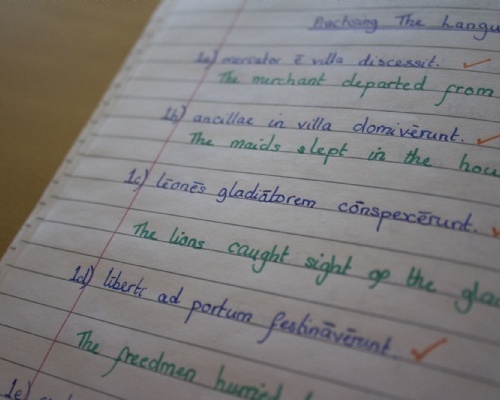 The Langu
1a) mercator ē villa discessit.
The merchant departed from
1b) ancillae in villa domivērunt.
The maids slept in the hou
1c) leōnēs gladiātorem cōnspexērunt.
The lions caught sight of the gla
1d) liberti ad portum festināvērunt.
The freedmen hurried
1e)